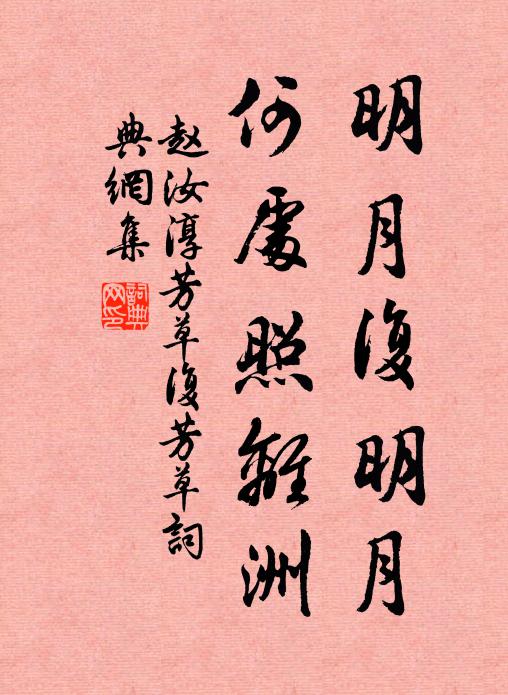 明月復明月
何處照離洲
赵汝淳芳草復芳草詞
典網集
詞典网印